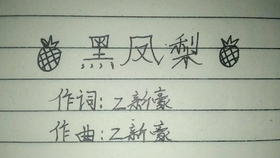 黑凤梨
作词:乙新豪
作曲:乙新豪